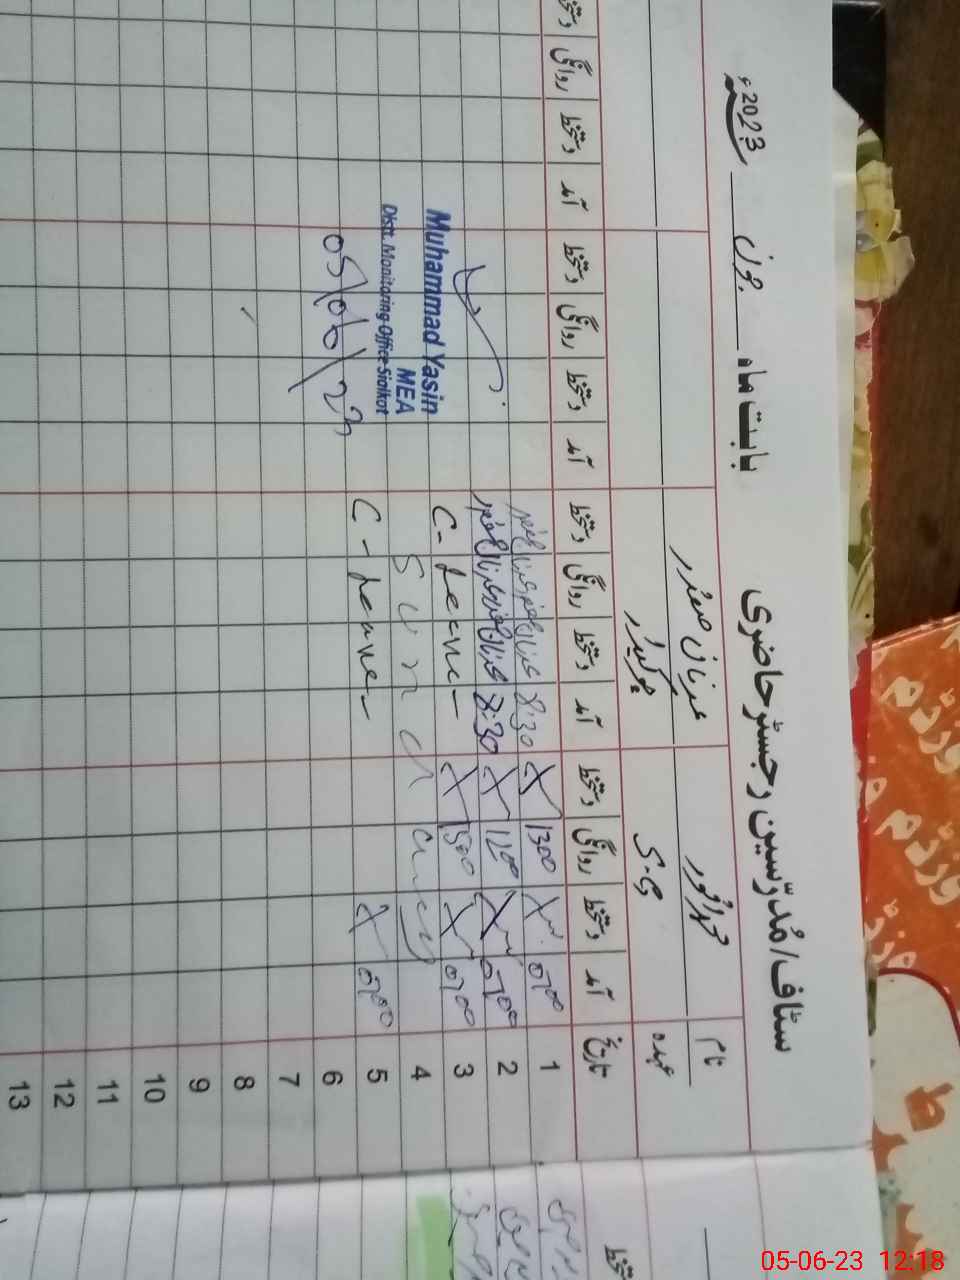 سٹاف/مُدرّسین رجسٹر حاضری بابت ماہ جون 2023ء
نام محمد انور
عہدہ S.G چوکیدار
تاریخ آمد دستخط روانگی دستخط آمد دستخط روانگی دستخط آمد دستخط روانگی دستخط آمد دستخط روانگی دستخط
1 0700 1300 8:30
2 0700 1200 8:30
3 0700 1300 C-Leave
4 Sunday
5 0700 C-Leave
6
7
8
9
10
11
12
13
Muhammad Yasin
MEA
Distt. Monitoring Office Sialkot
05/06/23
05-06-23 12:18